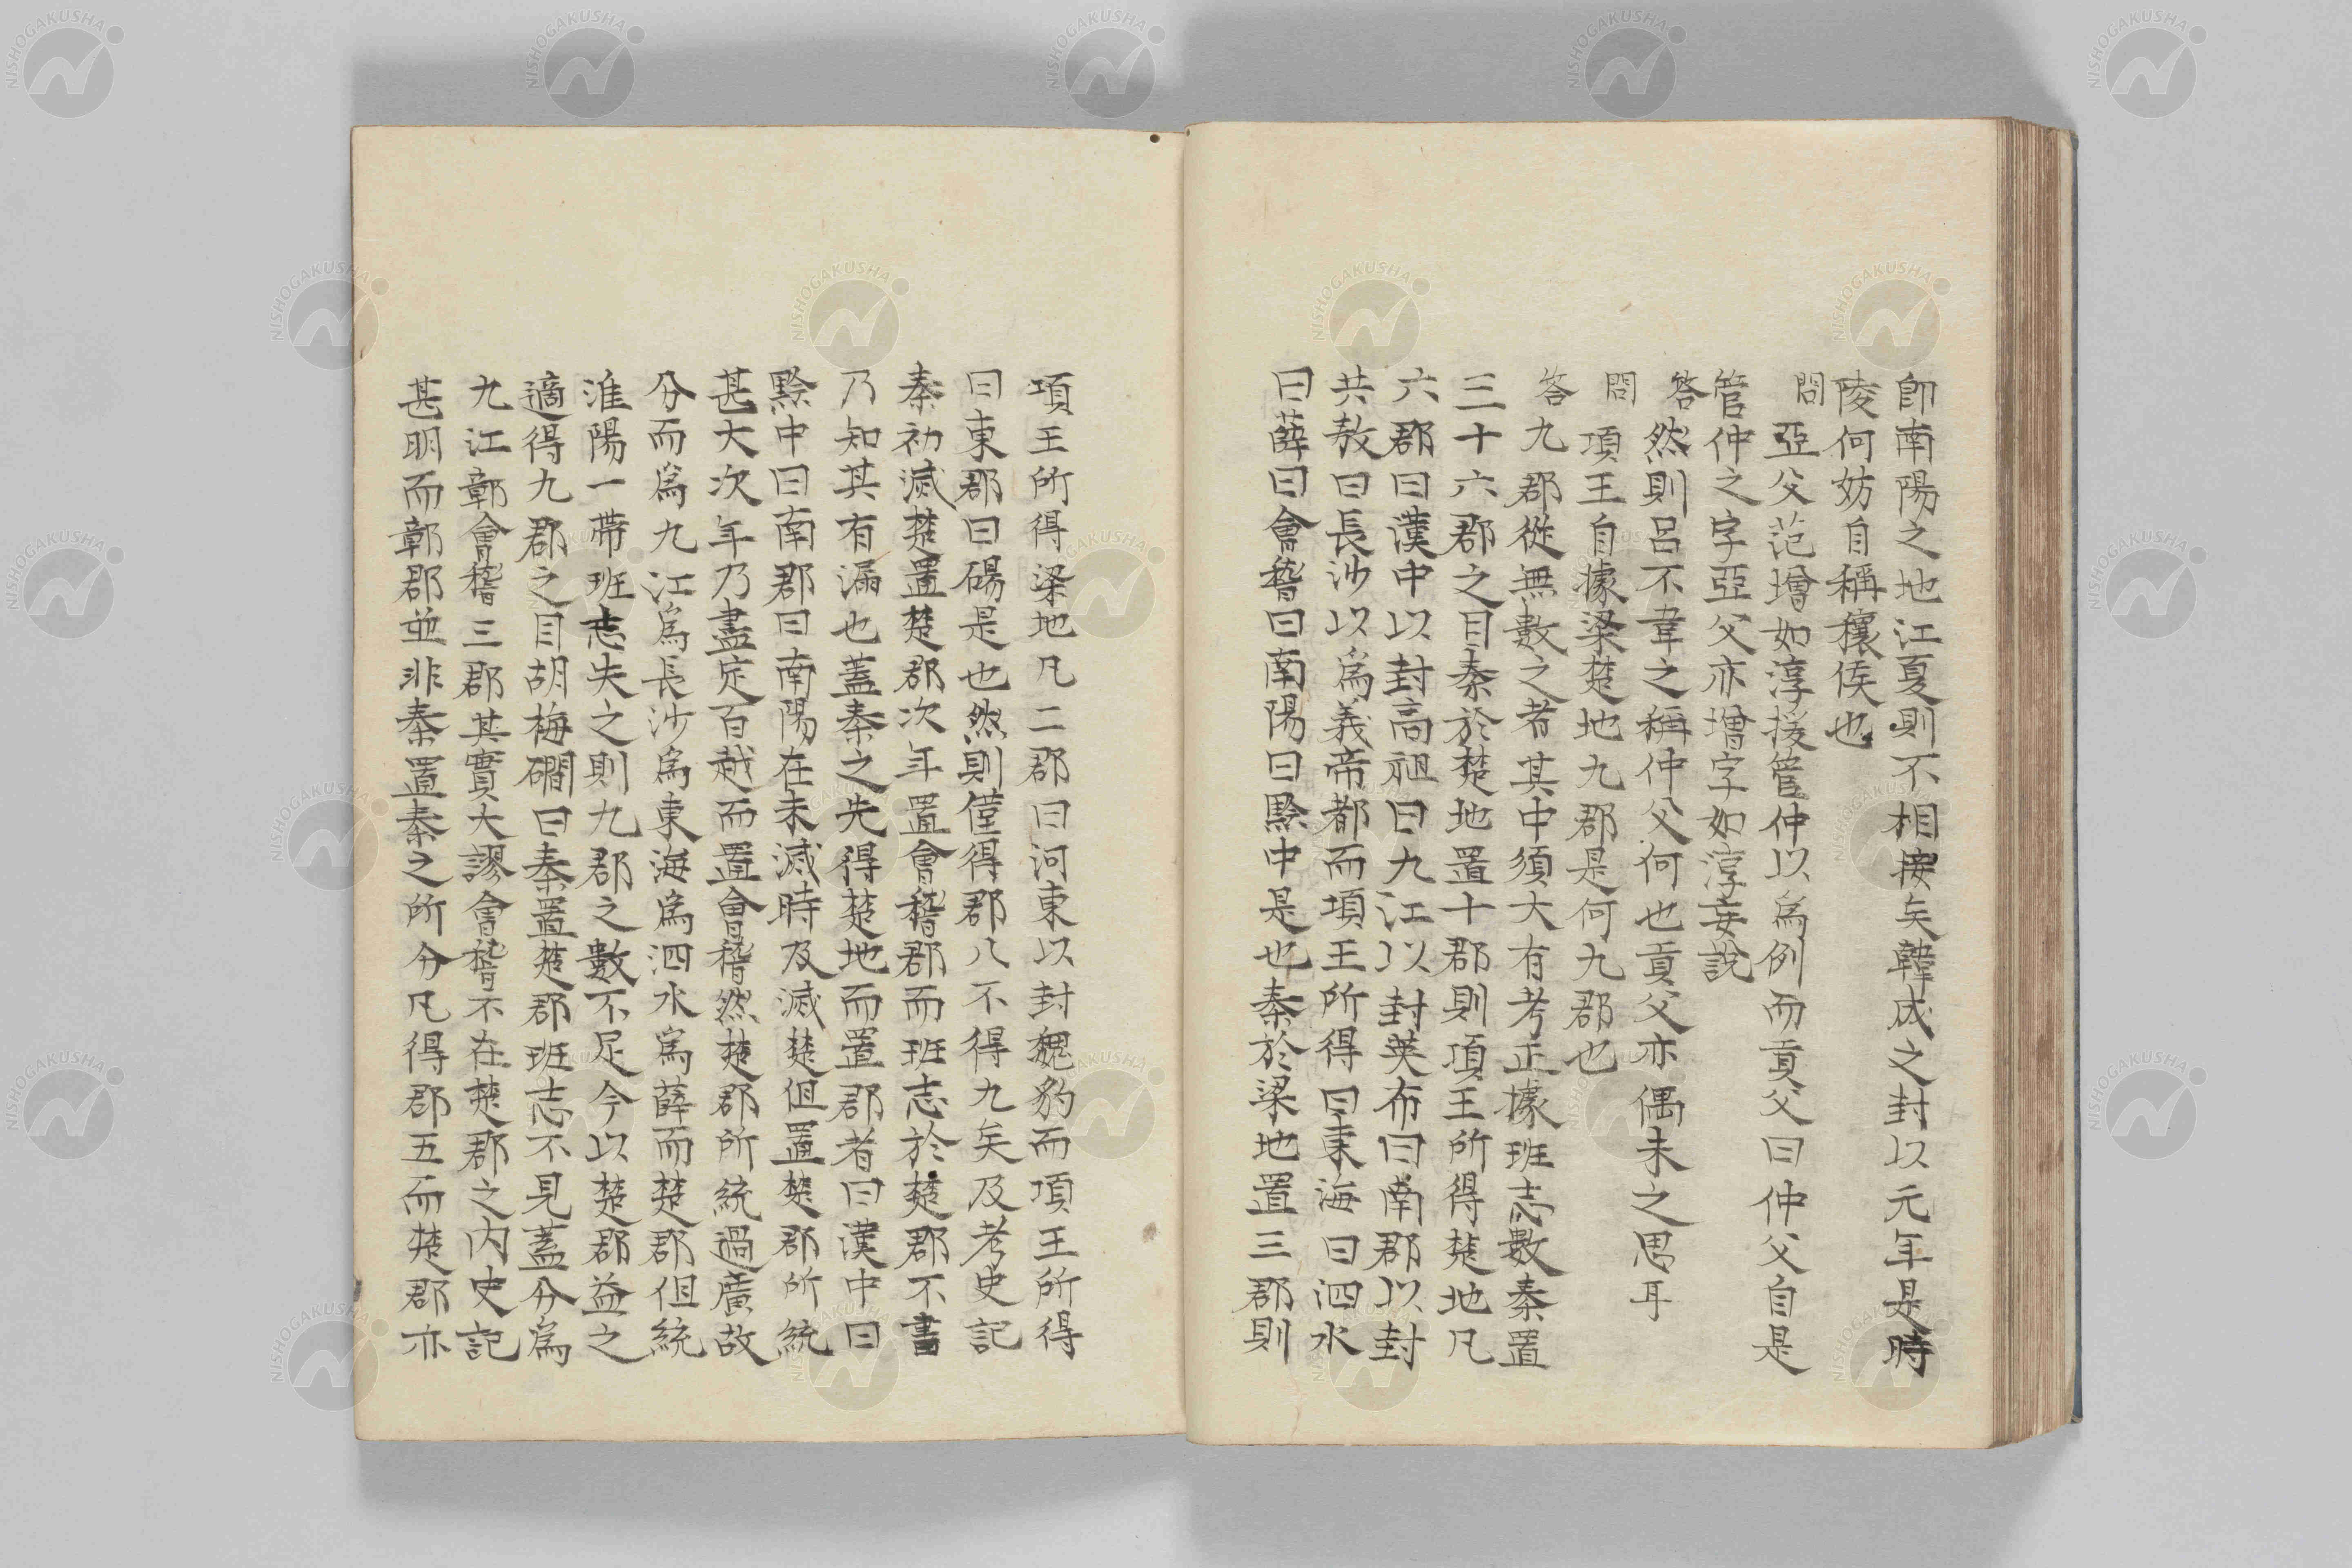 卽南陽之地江夏則不相接矣韓成之封以元年是時
陵何妨自稱穰侯也
問亞父范增如淳援管仲以爲例而貢父曰仲父自是
管仲之字亞父亦增字如淳妄說
答然則呂不韋之稱仲父何也貢父亦偶未之思耳
問項王自據梁楚地九郡是何九郡也
答九郡從無數之者其中須大有考正據班志數秦置
三十六郡之目秦於楚地置十郡則項王所得楚地凡
六郡曰漢中以封高祖曰九江以封英布曰南郡以封
共敖曰長沙以爲義帝都而項王所得曰東海曰泗水
曰薛曰會稽曰南陽曰黔中是也秦於梁地置三郡則
項王所得梁地凡二郡曰河東以封魏豹而項王所得
曰東郡曰碭是也然則僅得郡八不得九矣及考史記
秦初滅楚置楚郡次年置會稽郡而班志於楚郡不書
乃知其有漏也蓋秦之先得楚地而置郡者曰漢中曰
黔中曰南郡曰南陽在未滅時及滅楚但置楚郡所統
甚大次年乃盡定百越而置會稽然楚郡所統過廣故
分而爲九江爲長沙爲東海爲泗水爲薛而楚郡但統
淮陽一帶班志失之則九郡之數不足今以楚郡益之
適得九郡之目胡梅磵曰秦置楚郡班志不見蓋分爲
九江鄣會稽三郡其實大謬會稽不在楚郡之內史記
甚明而鄣郡並非秦置秦之所分凡得郡五而楚郡亦
NISHOGAKUSHA